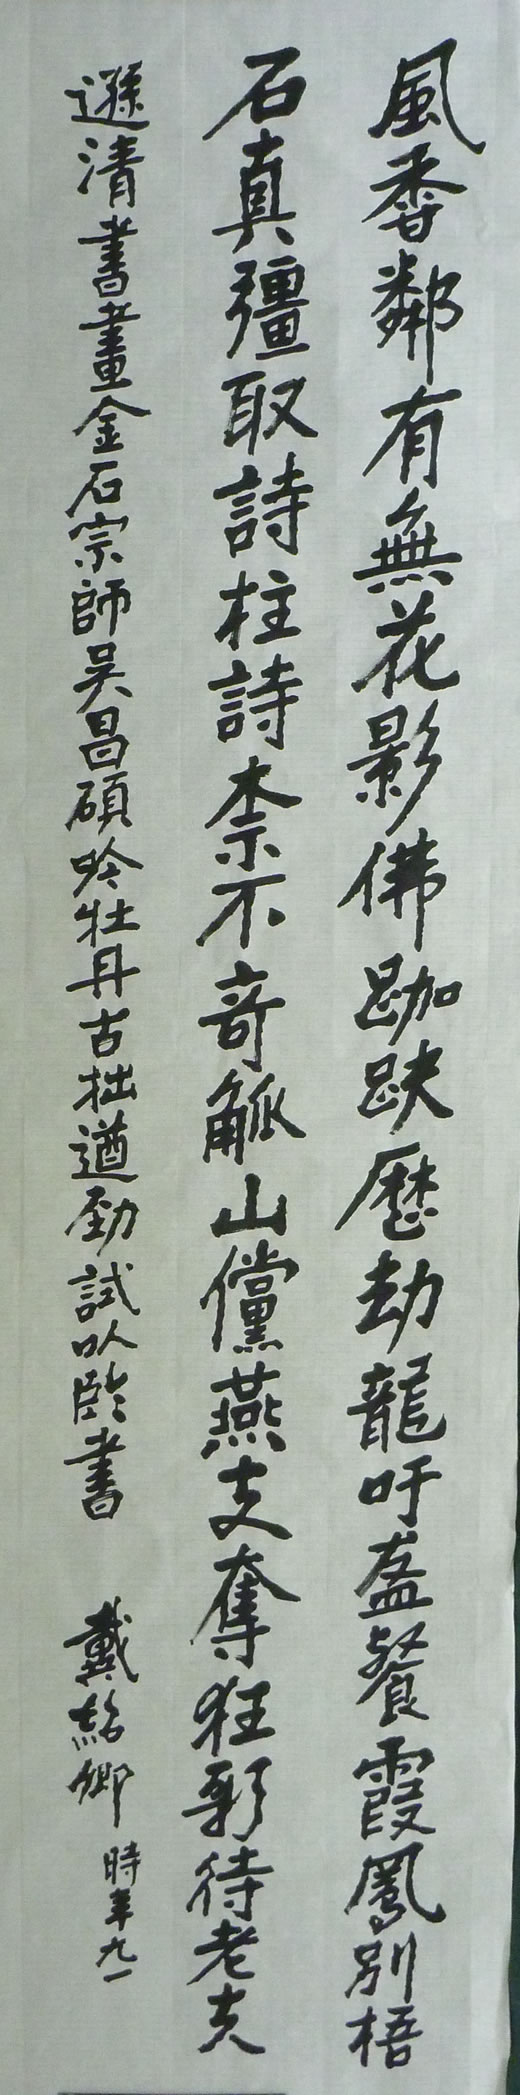 風香鄰有無花影佛跏趺歷劫龍吁盋餐霞鳳別梧
石真彊取詩柱詩柰不奇觚山儻燕支奪狂待老夫
遜清書畫金石宗師吳昌碩吟牡丹古拙遒勁試以臨書 戴紹卿
時年九一